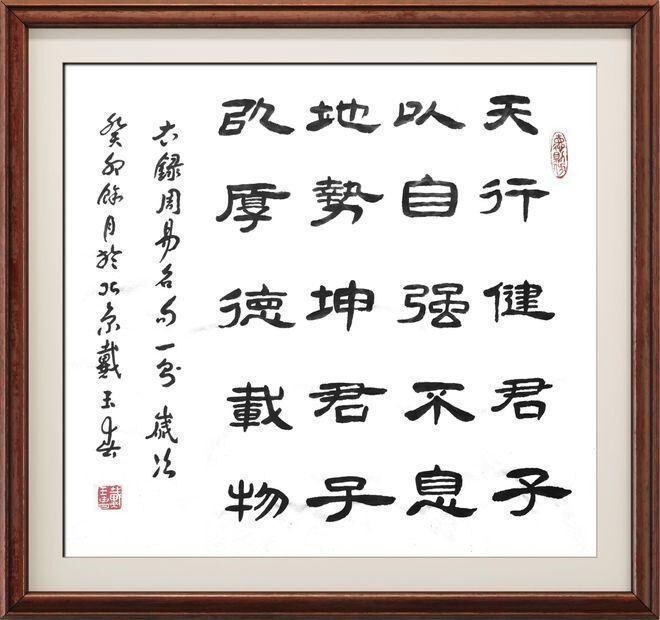 天行健君子
以自强不息
地勢坤君子
以厚德載物
右録周易名句一則 歲次
癸卯餘月於北京戴玉春